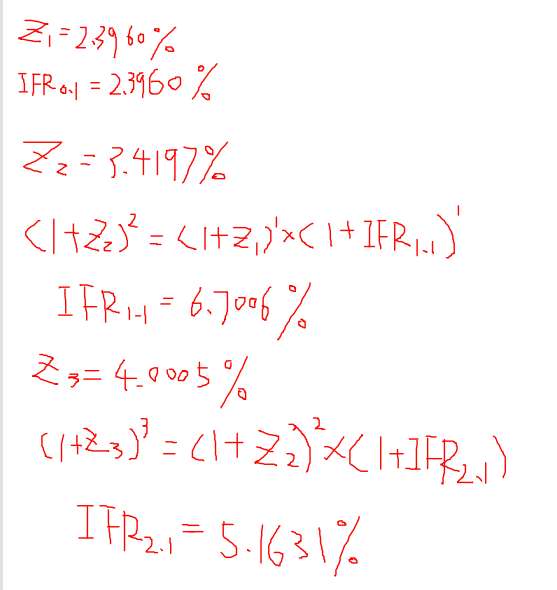 Z₁ = 2.3960%
IFR₀.₁ = 2.3960%
Z₂ = 3.4197%
(1+Z₂)² = (1+Z₁)¹×(1+IFR₁.₁)¹
IFR₁.₁ = 6.7006%
Z₃ = 4.0005%
(1+Z₃)³ = (1+Z₂)²×(1+IFR₂.₁)
IFR₂.₁ = 5.1631%